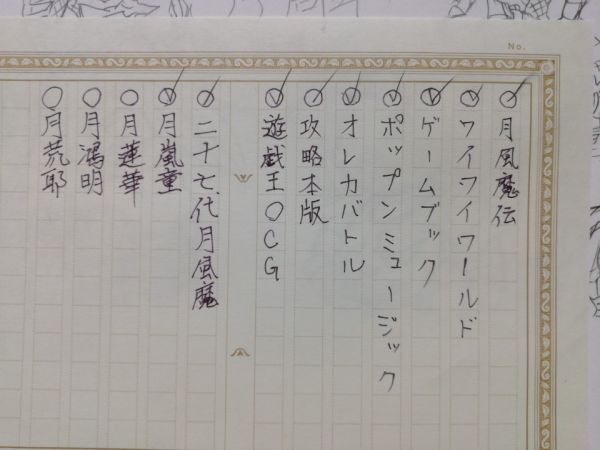 No.
○月風魔伝
○ワイワイワールド
○ゲームブック
○ポップンミュージック
○オレカバトル
○攻略本版
○遊戯王○CG
○二十七代月風魔
○月嵐童
○月蓮華
○月鴻明
○月荒耶